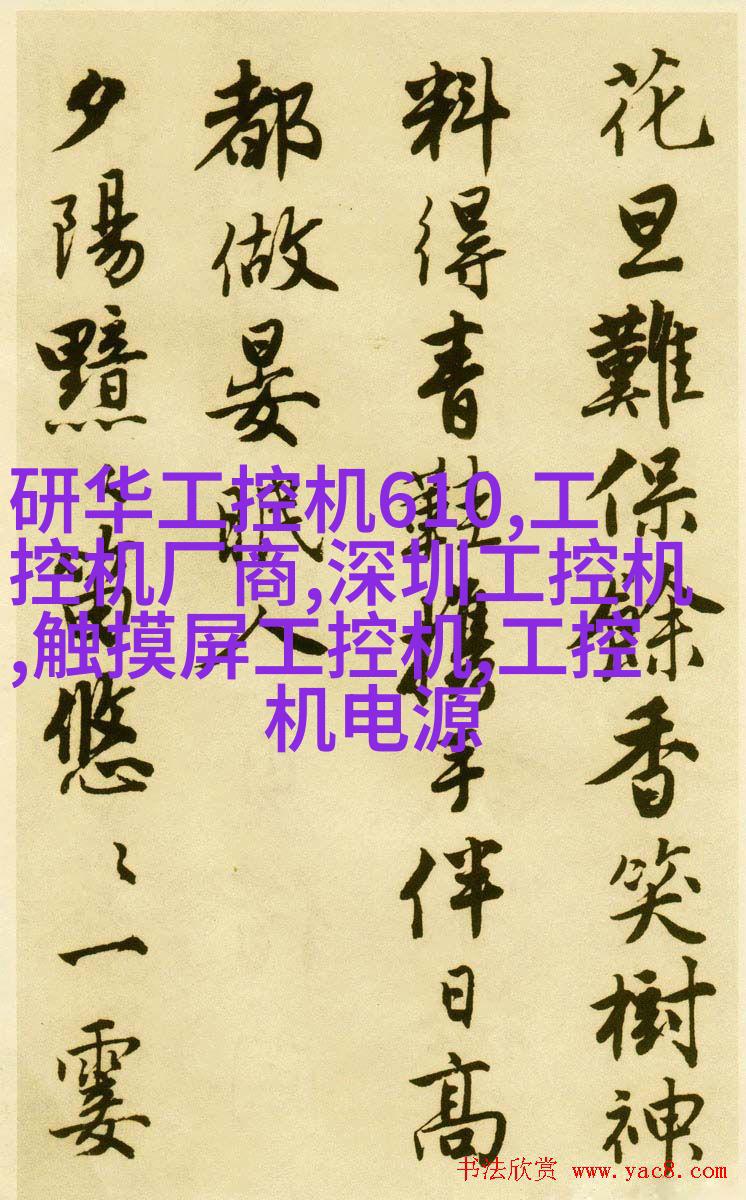 花旦難保餘香笑樹神
料得青鞋攜手伴日高
都做晏眠人
夕陽黯〻悠〻一霎
研华工控机610,工
控机厂商,深圳工控机
,触摸屏工控机,工控
机电源
书法欣赏 www.yac8.com